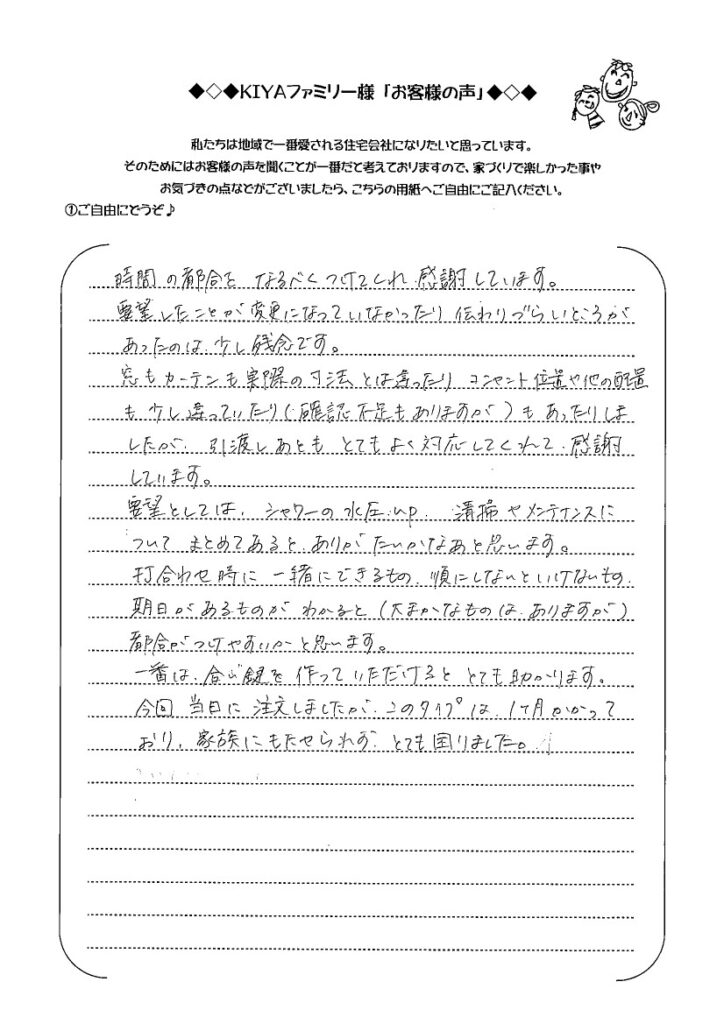 ◆◇◆KIYAファミリー様「お客様の声」◆◇◆
私たちは地域で一番愛される住宅会社になりたいと思っています。
そのためにはお客様の声を聞くことが一番だと考えておりますので、家づくりで楽しかった事や
お気づきの点などがございましたら、こちらの用紙へご自由にご記入ください。
①ご自由にどうぞ♪
時間の都合を なるべくつけてくれ 感謝しています。
要望したことが変更になっていなかったり 伝わりづらいところが
あったのは、少し残念です。
窓もカーテンも実際の寸法とは違ったり コンセント位置や他の配置
も少し違っていたり(確認不足もありますが)もあったりしま
したが、引渡しあとも とてもよく対応してくれて、感謝
しています。
要望としては、シャワーの水圧up、清掃やメンテナンスに
ついて まとめてあると、ありがたいかなあと思います。
打合わせ時に 一緒にできるもの、順にしないといけないもの、
期日があるものが わかると(大まかなものは、ありますが)
都合がつけやすいかと思います。
一番は、合い鍵を 作っていただけると とても助かります。
今回 当日に 注文しましたが、このタイプは、1ヶ月かかって
おり、家族にもたせられず、とても困りました。